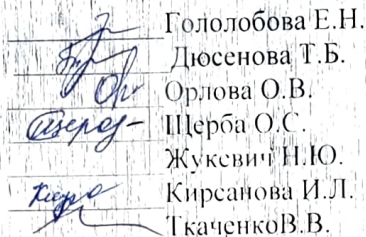 Гололобова Е.Н.
Дюсенова Т.Б.
Орлова О.В.
Щерба О.С.
Жукевич Н.Ю.
Кирсанова И.Л.
ТкаченкоВ.В.